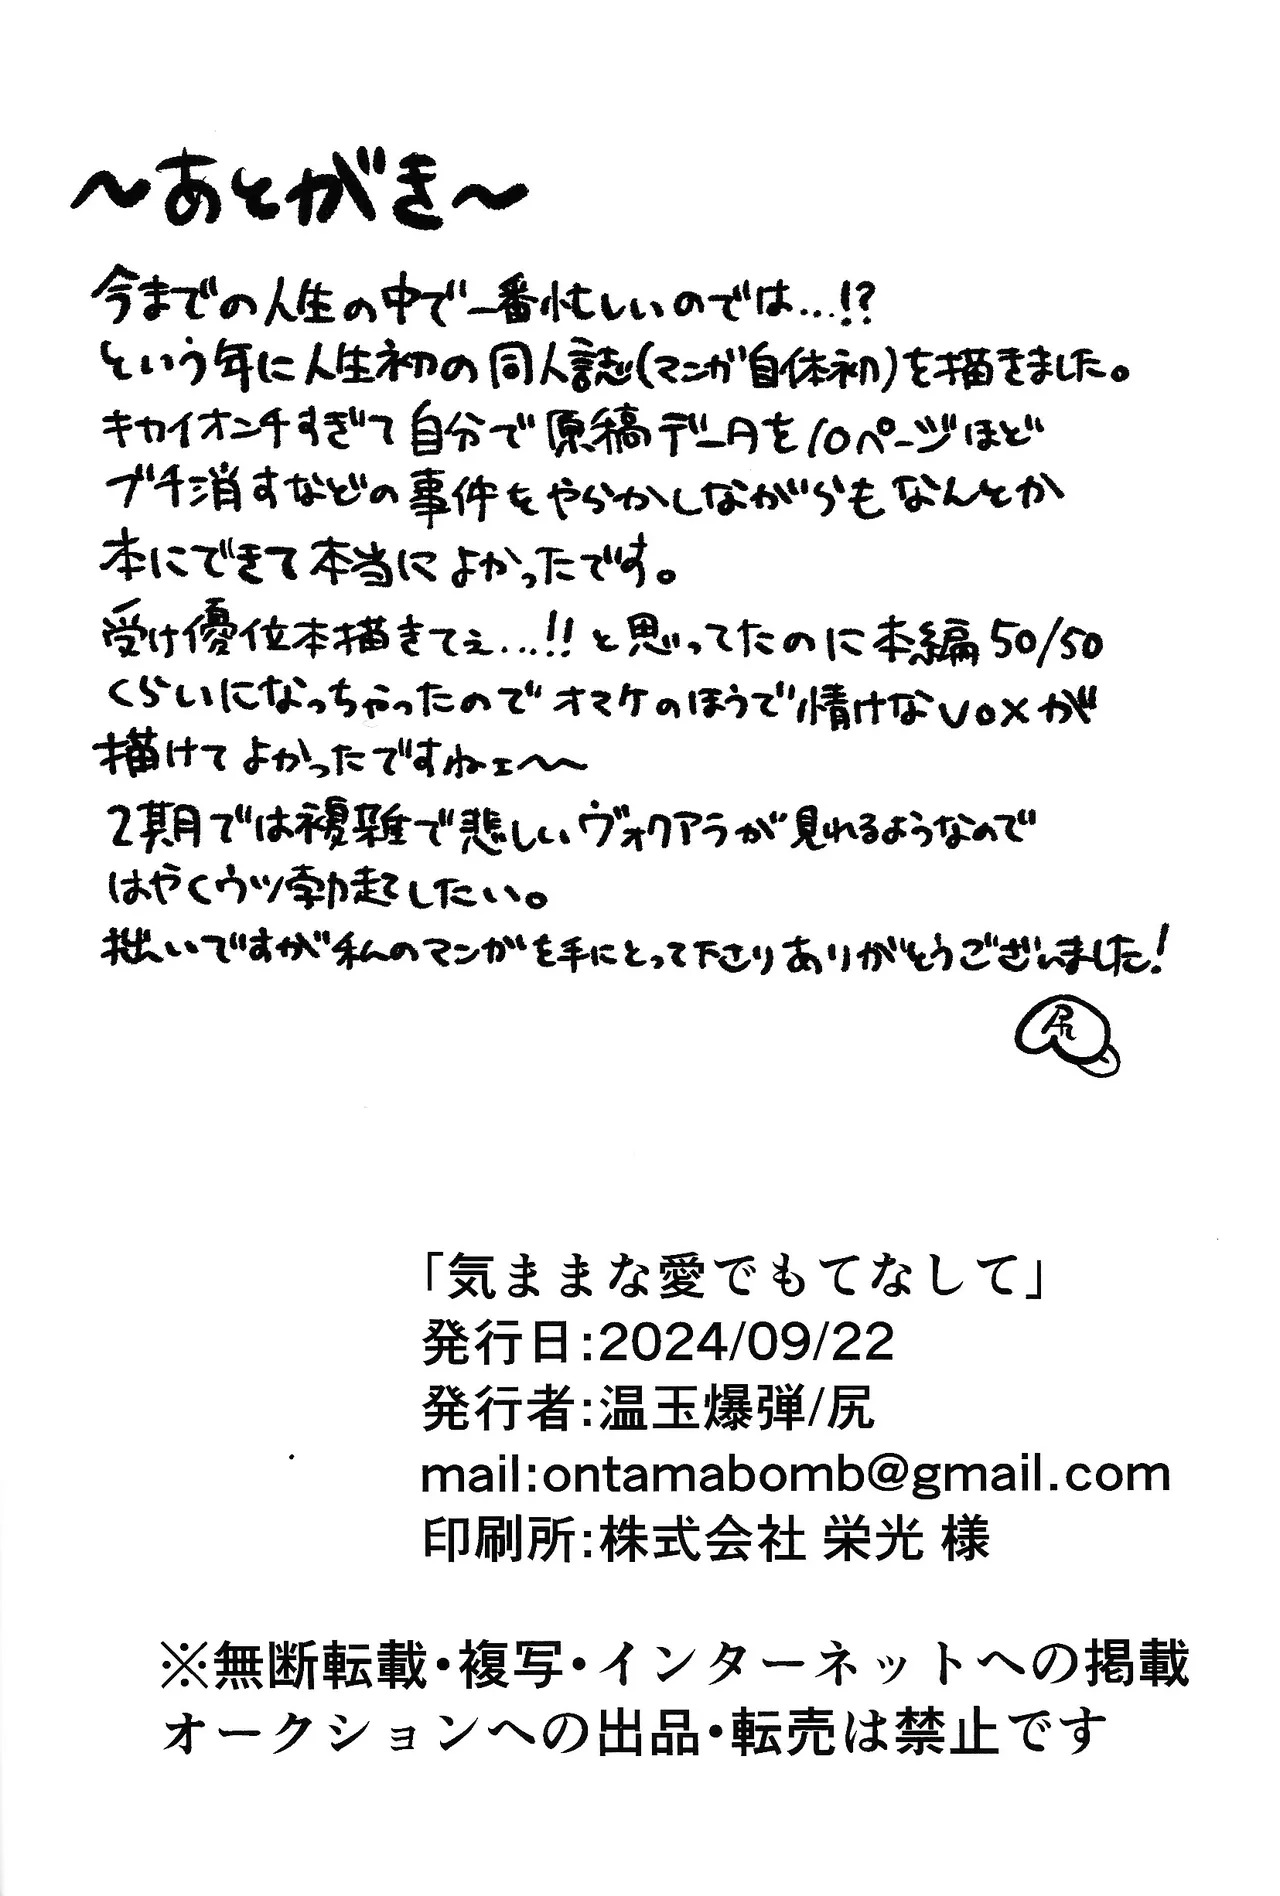 ～あとがき～
今までの人生の中で一番忙しいのでは…!?
という年に人生初の同人誌(マンガ自体初)を描きました。
キカイオンチすぎて自分で原稿データを10ページほど
ブチ消すなどの事件をやらかしながらもなんとか
本にできて本当によかったです。
受け優位本描きてぇ…!!と思ってたのに本編50/50
くらいになっちゃったのでオマケのほうで情けないvoxが
描けてよかったですねェ～～
2期では複雑で悲しいヴォクアラが見れるようなので
はやくウツ勃起したい。
拙いですが私のマンガを手にとって下さりありがとうございました!
尻
「気ままな愛でもてなして」
発行日:2024/09/22
発行者:温玉爆弾/尻
mail:ontamabomb@gmail.com
印刷所:株式会社 栄光 様
※無断転載・複写・インターネットへの掲載
オークションへの出品・転売は禁止です